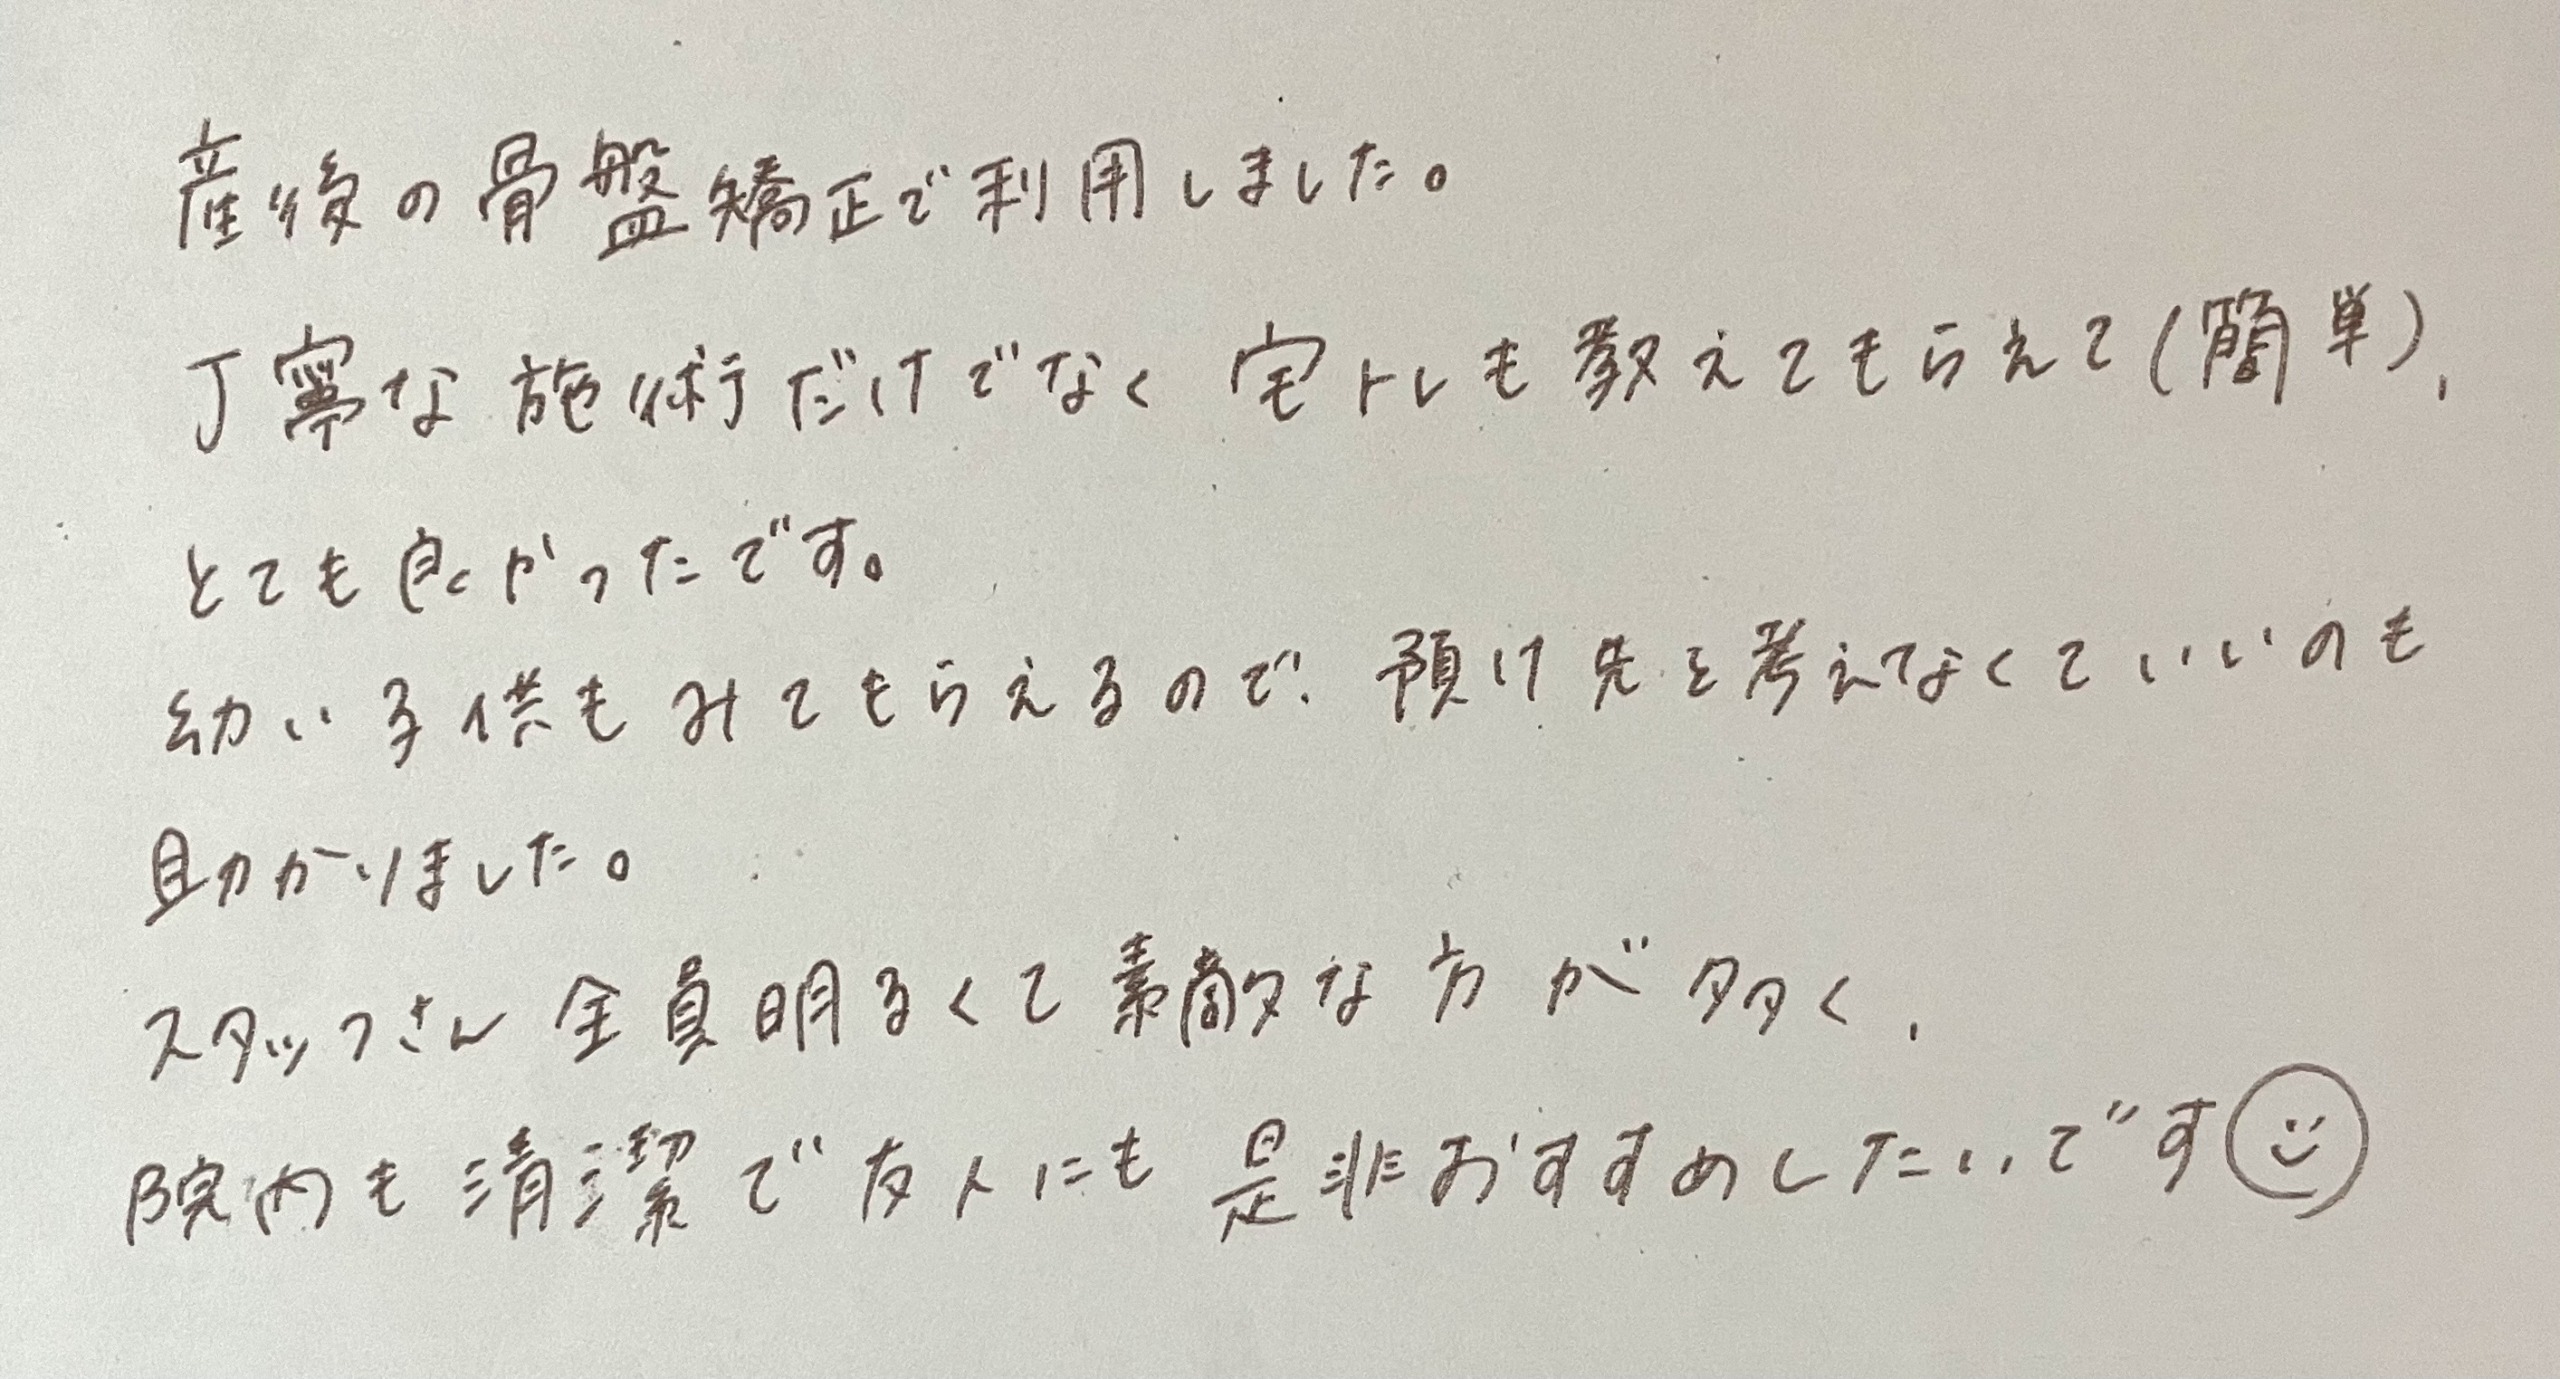 産後の骨盤矯正で利用しました。
丁寧な施術だけでなく宅トレも教えてもらえて(簡単)、
とても良かったです。
幼い子供もみてもらえるので、預け先を考えなくていいのも
助かりました。
スタッフさん全員明るくて素敵な方が多く、
院内も清潔で友人にも是非おすすめしたいです